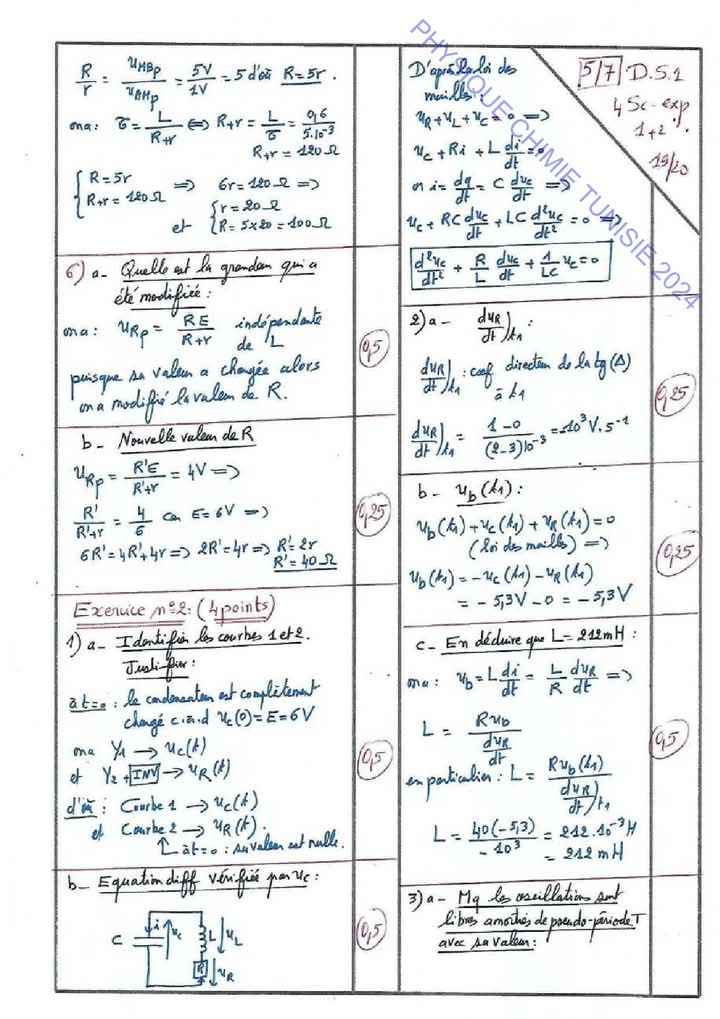 R/r = u_MBp/u_AMp = 5V/1V = 5 d'où R=5r.
ona: τ = L/(R+r) ⇔ R+r = L/τ = 0,6/5.10⁻³
R+r = 120Ω
{ R=5r
R+r = 120Ω ⇒ 6r=120Ω ⇒
et { r=20Ω
R=5x20=100Ω
6) a- Quelle est la grandeur qui a
été modifiée:
ona: u_Rp = RE/(R+r) indépendante
de L
puisque sa valeur a changée alors
on a modifié la valeur de R.
0,5
b- Nouvelle valeur de R
u_Rp = R'E/(R'+r) = 4V ⇒
R'/(R'+r) = 4/6 car E=6V ⇒
6R'=4R'+4r ⇒ 2R'=4r ⇒ R'=2r
R'=40Ω
0,25
Exercice n°2: (4 points)
1) a- Identifier les courbes 1 et 2.
Justifier:
à t=0: le condensateur est complètement
chargé c.à.d u_C(0)=E=6V
ona Y1 → u_C(t)
et Y2+INV → u_R(t)
d'où: Courbe 1 → u_C(t)
et Courbe 2 → u_R(t).
à t=0: sa valeur est nulle.
0,5
b- Equation diff vérifiée par u_C:
C i u_C L u_L
R u_R
0,5
D'après la loi des
mailles:
u_R+u_L+u_C=0 ⇒
u_C+Ri+L di/dt=0
or i = dq/dt = C du_C/dt ⇒
u_C+RC du_C/dt+LC d²u_C/dt²=0 ⇒
d²u_C/dt² + R/L du_C/dt + 1/LC u_C=0
5/7 D.S.1
4 Sc-exp
1+2
19/20
2) a- du_R/dt)t1:
du_R/dt)t1: coef directeur de la tg(Δ)
à t1
du_R/dt)t1 = (1-0)/((2-3)10⁻³) = -10³V.s⁻¹
0,25
b- u_b(t1):
u_b(t1)+u_C(t1)+u_R(t1)=0
(loi des mailles) ⇒
u_b(t1)=-u_C(t1)-u_R(t1)
= -5,3V-0 = -5,3V
0,25
c- En déduire que L=212mH:
ona: u_b=L di/dt = L/R du_R/dt ⇒
L = Ru_b/(du_R/dt)
en particulier: L = Ru_b(t1)/(du_R/dt)t1
L = 40(-5,3)/-10³ = 212.10⁻³H
= 212mH
0,5
3) a- Mq les oscillations sont
libres amorties de pseudo-période T
avec sa valeur:
PHYSIQUE CHIMIE TUNISIE 2024